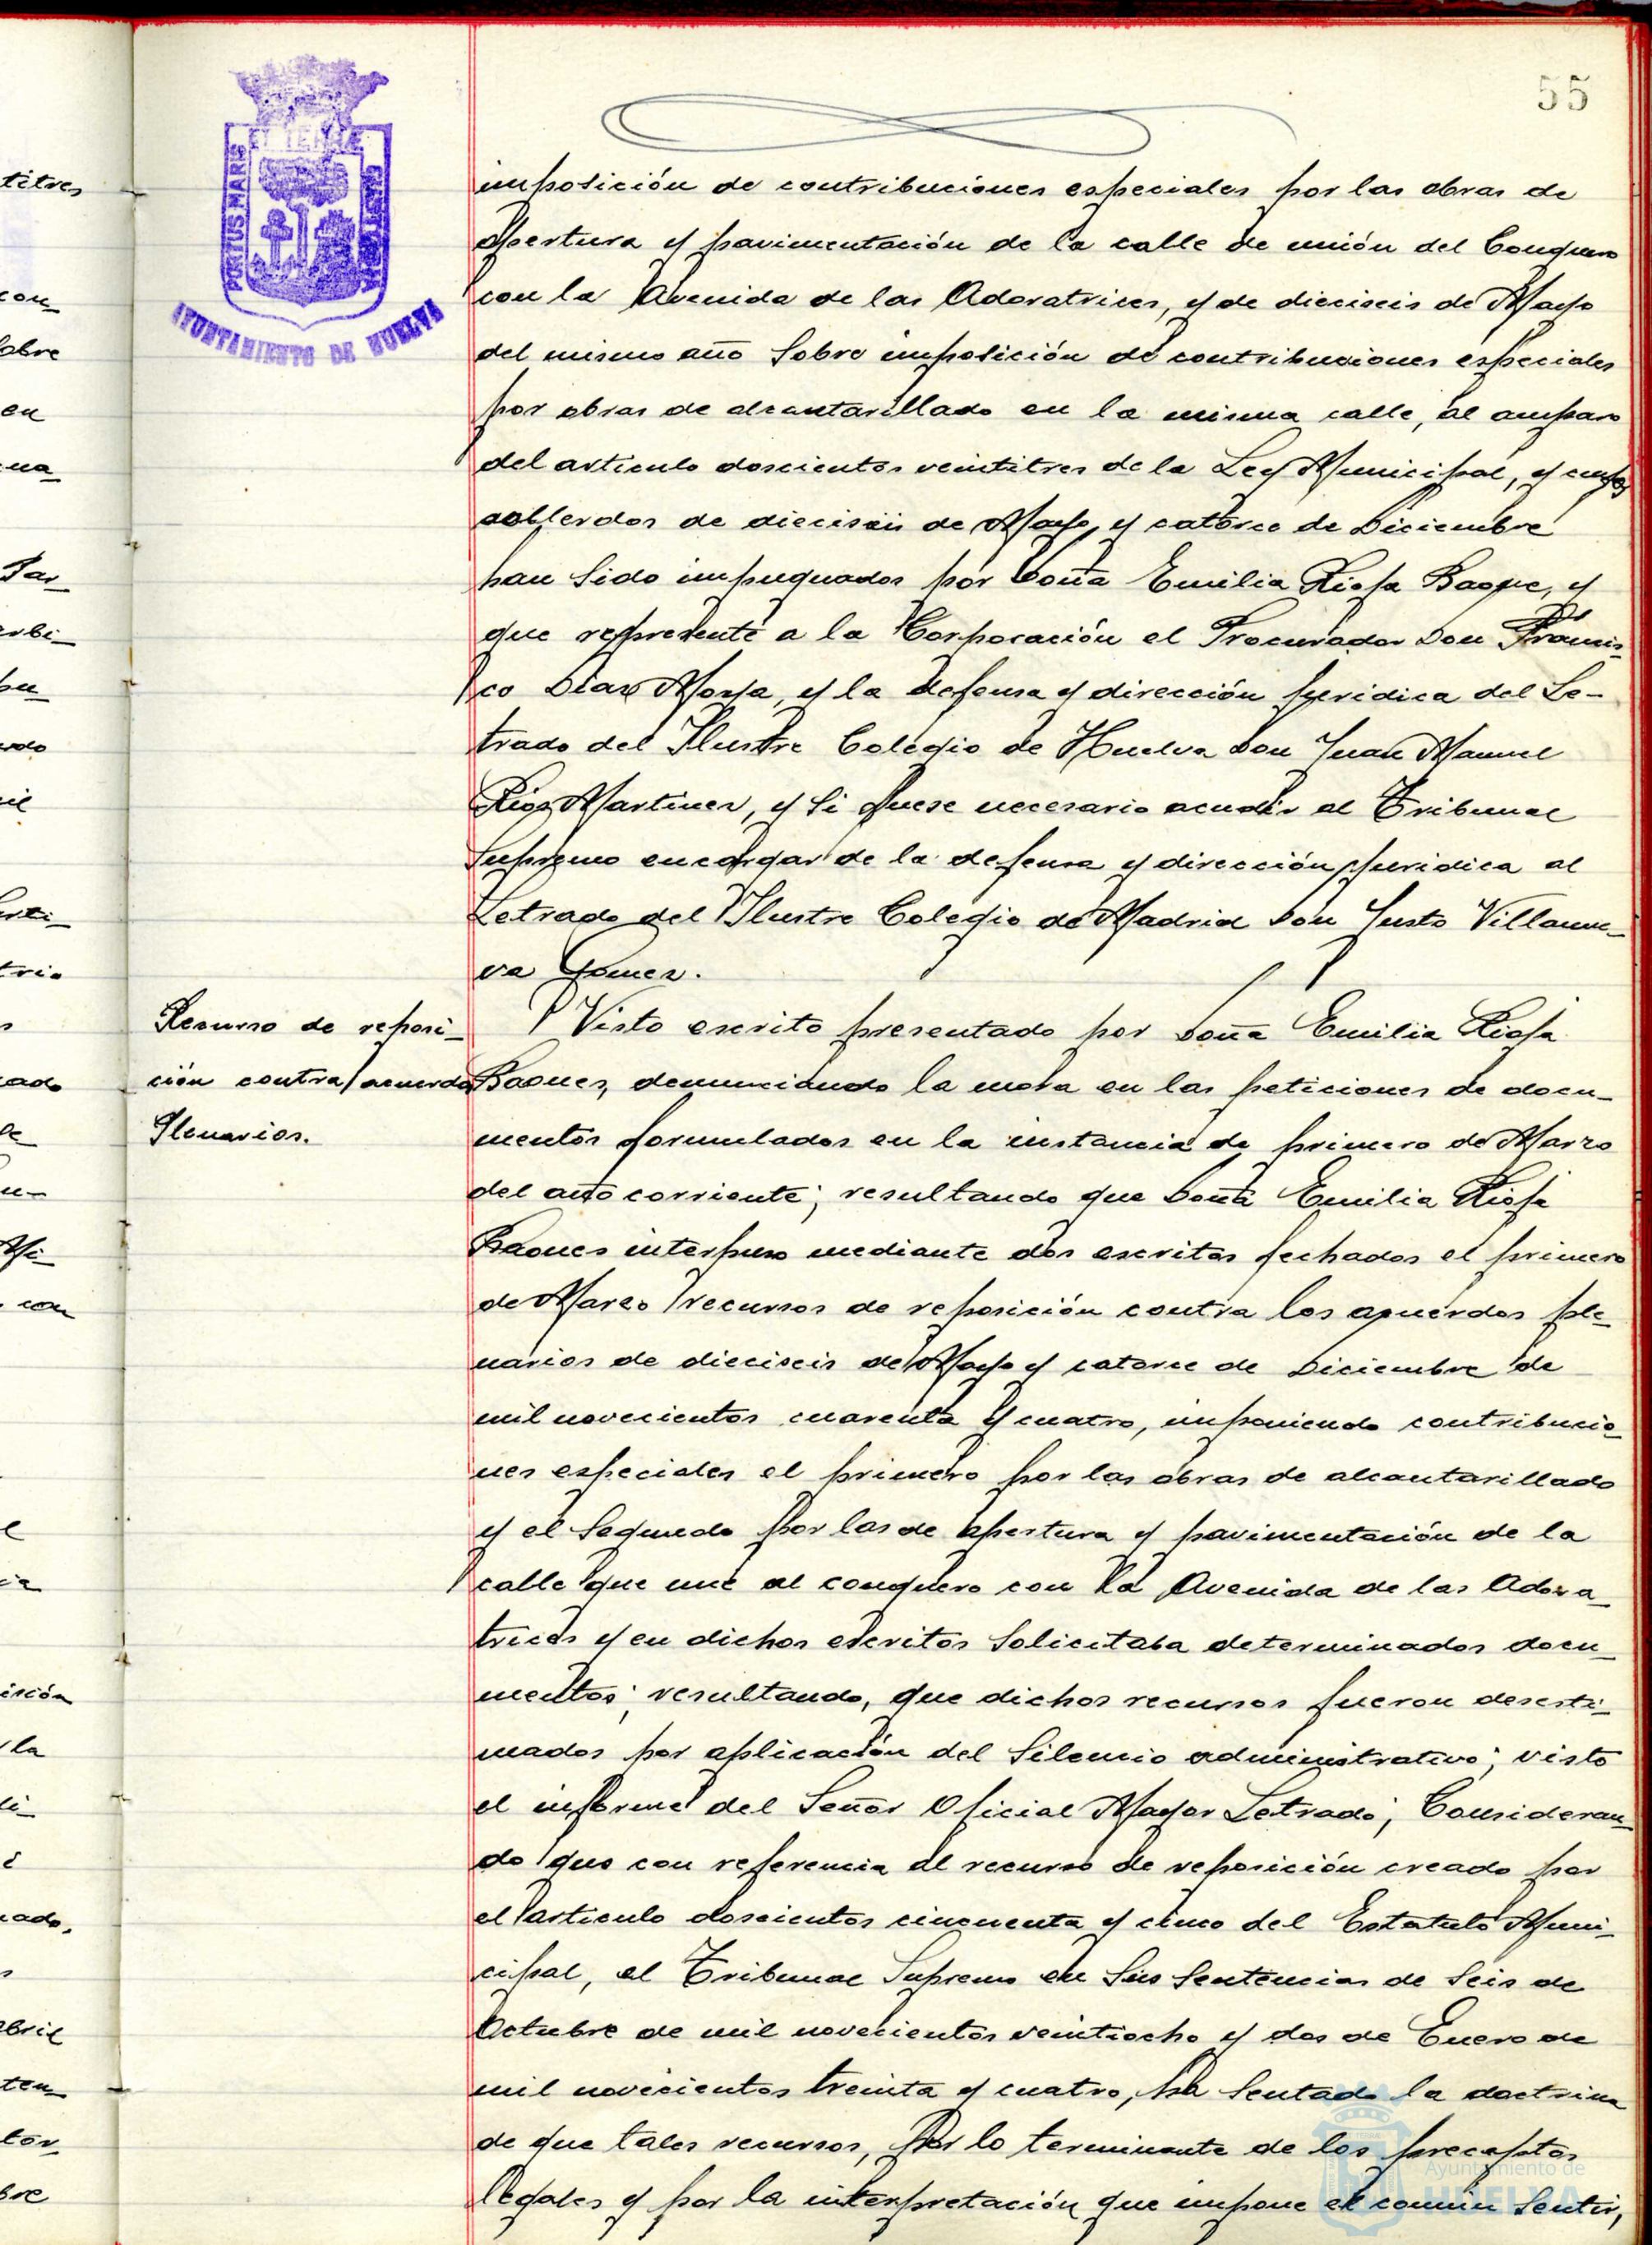 55
PORTUS MARIS
ET TERRAE
CUSTODIA
AYUNTAMIENTO DE HUELVA
imposición de contribuciones especiales por las obras de
apertura y pavimentación de la calle de unión del Conquero
con la Avenida de las Adoratrices, y de dieciseis de Mayo
del mismo año sobre imposición de contribuciones especiales
por obras de alcantarillado en la misma calle, al amparo
del articulo doscientos veintitres de la Ley Municipal, y cuyos
de dieciseis de Mayo, y catorce de Diciembre
han sido impugnados por Doña Emilia Rioja y
que represente a la Corporación el Procurador Don Francis-
co Diaz y la defensa y dirección juridica del Le-
trado del Ilustre Colegio de Huelva Don Juan Manuel
Martinez, y si fuese necesario acudir al Tribunal
Supremo encargar de la defensa y dirección juridica al
Letrado del Ilustre Colegio de Madrid Don Justo Villanue-
va Gomez.
Recurso de reposi-
ción contra acuerdos
Plenarios.
Visto escrito presentado por Doña Emilia Rioja
Baones, denunciando la mora en las peticiones de docu-
mentos formulados en la instancia de primero de Marzo
del año corriente; resultando que Doña Emilia Rioja
Baones interpuso mediante dos escritos fechados el primero
de Marzo recursos de reposición contra los acuerdos ple-
narios de dieciseis de Mayo y catorce de Diciembre de
mil novecientos cuarenta y cuatro, imponiendo contribucio-
nes especiales el primero por las obras de alcantarillado
y el segundo por las de apertura y pavimentación de la
calle que une al conquero con la Avenida de las Adora-
trices y en dichos escritos solicitaba determinados docu-
mentos; resultando, que dichos recursos fueron desesti-
mados por aplicación del silencio administrativo; visto
el informe del Señor Oficial Mayor Letrado; Consideran-
do que con referencia al recurso de reposición creado por
el articulo doscientos cincuenta y cinco del Estatuto Muni-
cipal, el Tribunal Supremo en sus sentencias de seis de
Octubre de mil novecientos veintiocho y dos de Enero de
mil novecientos treinta y cuatro, ha sentado la doctrina
de que tales recursos, por lo terminante de los preceptos
legales y por la interpretación que impone el común sentir,
Ayuntamiento de
HUELVA